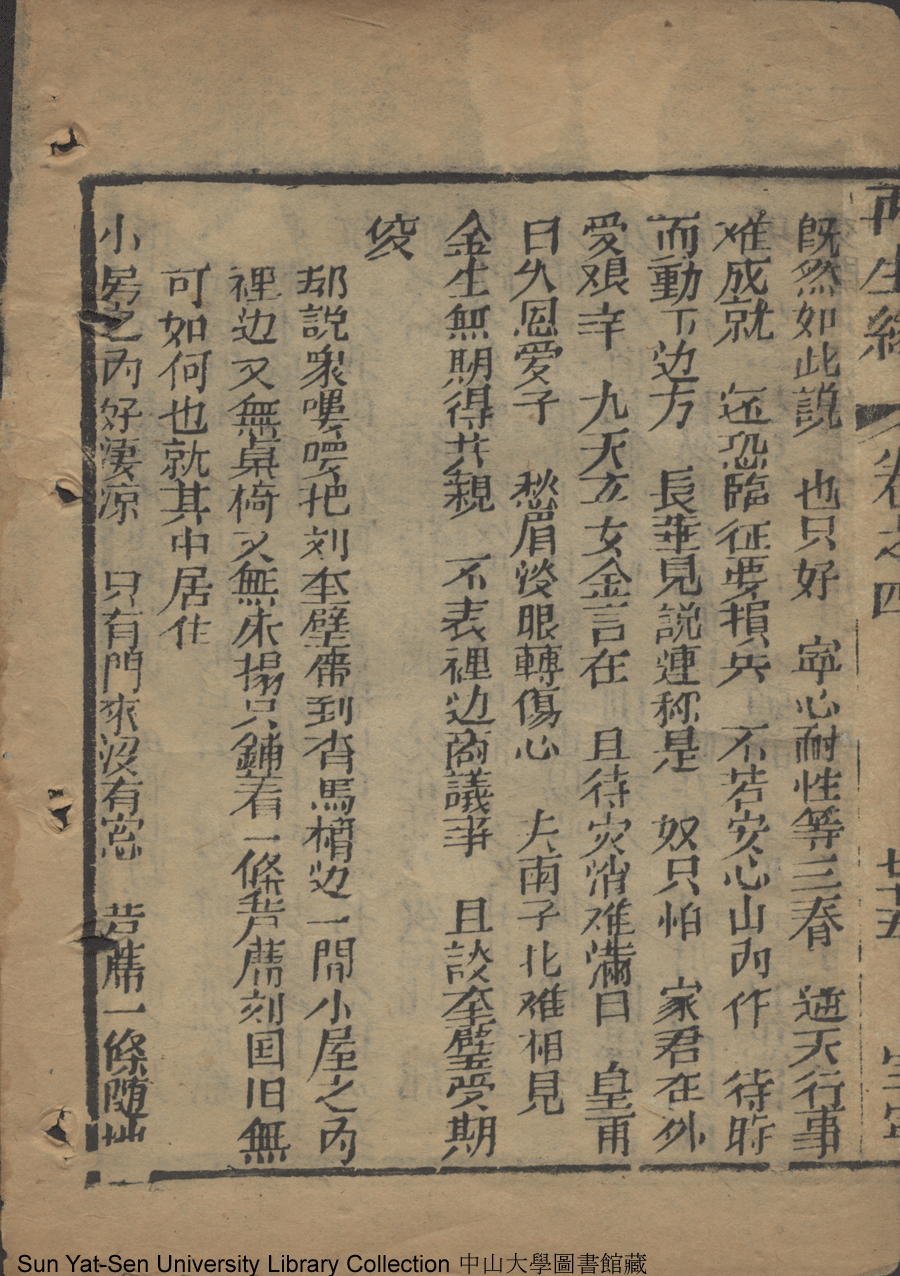 再生緣 卷之四 七十五
既然如此説 也只好 寧心耐性等三春 逆天行事
难成就 还恐臨征要損兵 不若安心山内作 待時
而動下边方 長華見説連称是 奴只怕 家君在外
受艰辛 九天玄女金言在 且待灾消难满日 皇甫
日久恩爱子 愁眉淚眼轉傷心 夫南子北难相見
金生無期得共親 不表裡边商議事 且談奎璧受期
侫
却説衆嘍嘍把刘奎璧帶到育馬槽边一間小屋之内
裡边又無桌椅又無床榻只鋪着一條苦薦刘国旧無
可如何也就其中居住
小房之内好淒凉 只有門來沒有窓 苦薦一條随地
Sun Yat-Sen University Library Collection 中山大學圖書館藏